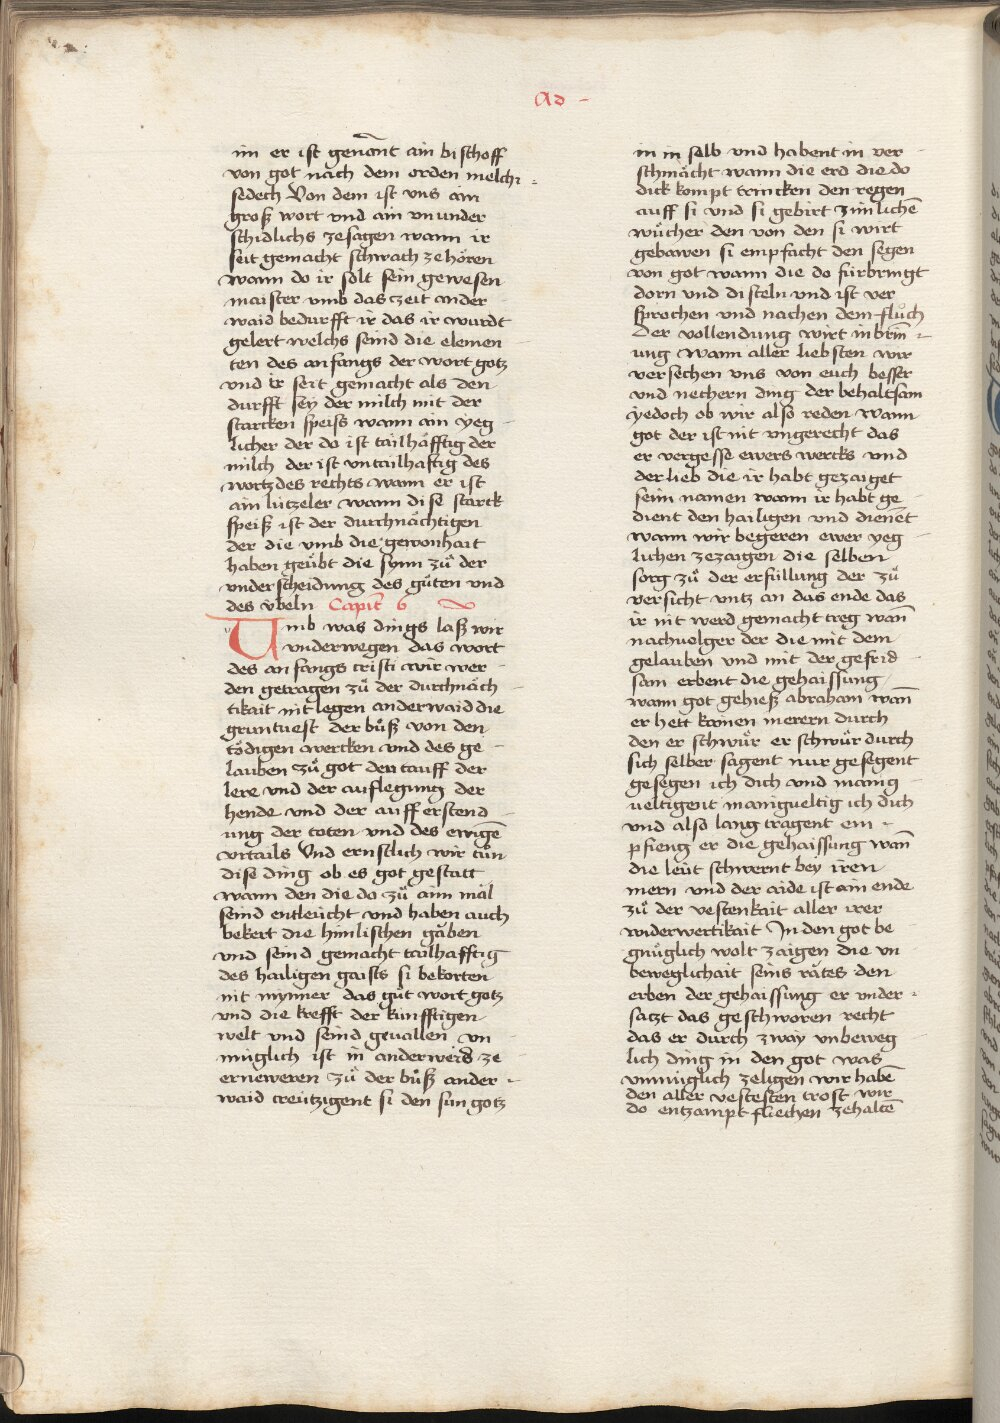 Ad
im er ist genant ain bischoff
von got nach dem orden melchi
sedech Von dem ist vns ain
groß wort vnd ain vnunder
schidlichs zesagen wann ir
seit gemacht schwach zehören
wann do ir solt sein gewesen
maister vmb das zeit ander
waid bedurfft ir das ir wurdt
gelert welchs seind die elemen
ten des anfangs der wort gotz
vnd ir seit gemacht als den
durfft sey der milch nit der
starcken speiss wann ain yeg
licher der do ist tailhäfftig der
milch der ist vntailhaftig des
wortz des rechts wann er ist
ain lützeler wann dise starck
speiß ist der durchnächtigen
der die vmb die gewonhait
haben geübt die synn zů der
vnderscheidung des gůten vnd
des v̈beln Capitl 6
Vmb was dings laß wir
vnderwegen das wort
des anfangs cristi wir wer
den getragen zů der durchnäch
tikait nit legen anderwaid die
gruntuest der bůß von den
tödigen wercken vnd des ge
lauben zů got den tauff der
lere vnd der auflegung der
hende vnd der aufferstend
ung der toten vnd des ewigē
vrtails Vnd ernstlich wir tůn
dise ding ob es got gestatt
wann den die do zů aim mäl
seind entleücht vnd haben auch
bekert die himlischen gäben
vnd seind gemacht tailhafftig
des hailigen gaists si bekorten
nit mynner das gůt wort gotz
vnd die krefft der künfftigen
welt vnd seind geuallen vn
müglich ist in anderweid ze
erneweren zů der bůß ander
waid creützigent si den sun gotz
in in selb vnd habent in ver
schmächt wann die erd die do
dick kompt trincken den regen
auff si vnd si gebirt zimlichē
wůcher den von den si wirt
gebawen si empfacht den segen
von got wann die do fürbringt
dorn vnd disteln vnd ist ver
sprochen vnd nachen dem flůch
Der vollendung wirt in brin
ung Wann aller liebsten wir
versechen vns von euch besser
vnd nechern ding der behaltsam
yedoch ob wir also reden Wann
got der ist nit vngerecht das
er vergesse ewers wercks vnd
der lieb die ir habt gezaiget
seim namen wann ir habt ge
dient den hailigen vnd dienēt
wann wir begeren ewer yeg
lichen zezaigen die selben
sorg zů der erfüllung der zů
versicht vntz an das ende das
ir nit werd gemacht treg wañ
nachuolger der die mit dem
gelauben vnd mit der gefrid
sam erbent die gehaissung
wann got gehieß abraham wañ
er hett kainen merern durch
den er schwůr er schwůr durch
sich selber sagent nur gesegent
gesegen ich dich vnd manig
ueltigent manigueltig ich dich
vnd also lang tragent em
pfieng er die gehaissung wañ
die leüt schwernt bey iren
mern vnd der aide ist ain ende
zů der vestenkait aller irer
widerwertikait In den got be
gnůglich wolt zaigen die vn
beweglichait seins rätes den
erben der gehaissung er vnder
satzt das geschworen recht
das er durch zway vnbeweg
lich ding in den got was
vnmüglich zeligen wir habē
den aller vestesten trost wir
do entzampt fliechen zehaltē